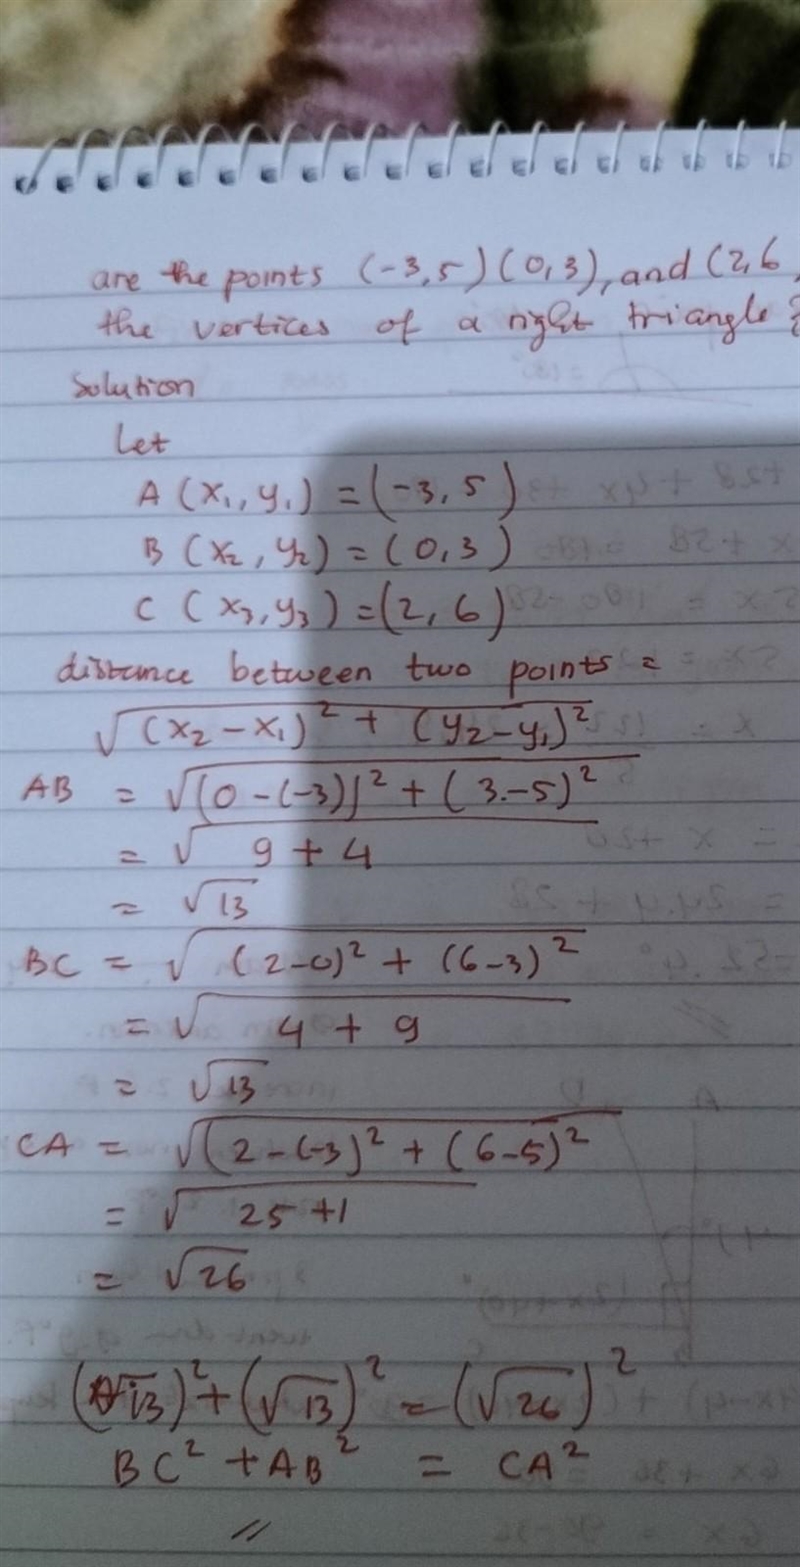 are the points (-3,5)(0,3), and (2,6
the vertices of a right triangle?
Solution
Let
A (x₁, y₁) = (-3, 5)
B (x₂, y₂) = (0,3)
C (x₃, y₃) = (2, 6)
distance between two points =
√(x₂-x₁)² + (y₂-y₁)²
AB = √(0-(-3))² + (3-5)²
= √9+4
= √13
BC = √(2-0)² + (6-3)²
= √4+9
= √13
CA = √(2-(-3)² + (6-5)²
= √25+1
= √26
(√13)² + (√13)² = (√26)²
BC² + AB² = CA²
//